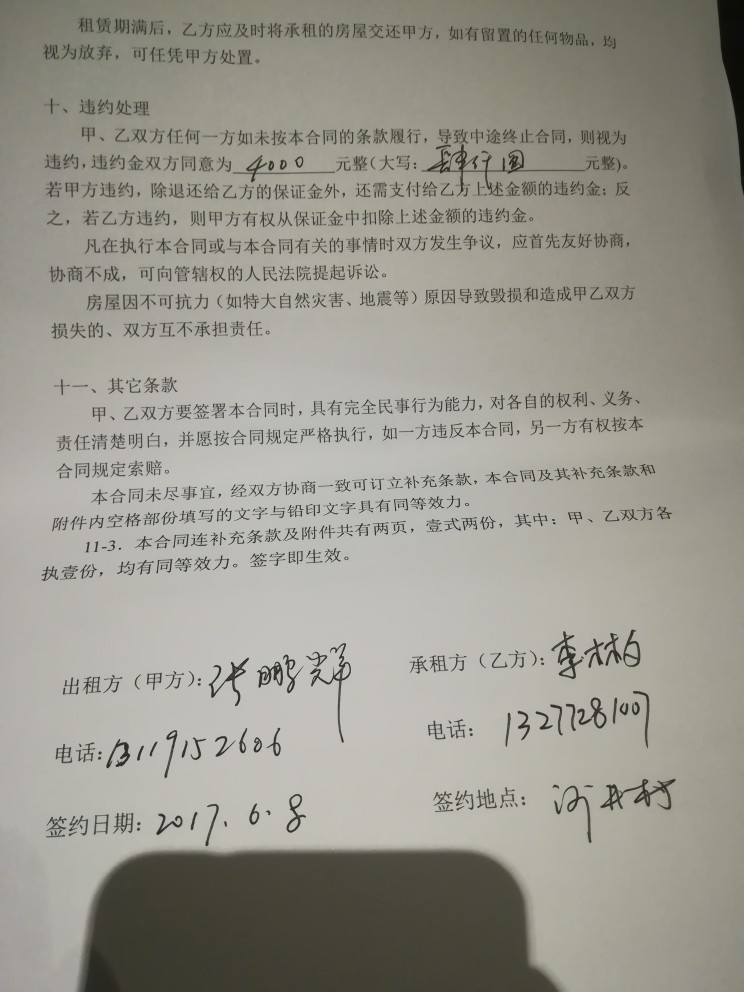 租赁期满后，乙方应及时将承租的房屋交还甲方，如有留置的任何物品，均
视为放弃，可任凭甲方处置。
十、违约处理
甲、乙双方任何一方如未按本合同的条款履行，导致中途终止合同，则视为
违约，违约金双方同意为 4000 元整（大写：肆仟圆 元整)。
若甲方违约，除退还给乙方的保证金外，还需支付给乙方上述金额的违约金；反
之，若乙方违约，则甲方有权从保证金中扣除上述金额的违约金。
凡在执行本合同或与本合同有关的事情时双方发生争议，应首先友好协商，
协商不成，可向管辖权的人民法院提起诉讼。
房屋因不可抗力（如特大自然灾害、地震等）原因导致毁损和造成甲乙双方
损失的、双方互不承担责任。
十一、其它条款
甲、乙双方要签署本合同时，具有完全民事行为能力，对各自的权利、义务、
责任清楚明白，并愿按合同规定严格执行，如一方违反本合同，另一方有权按本
合同规定索赔。
本合同未尽事宜，经双方协商一致可订立补充条款，本合同及其补充条款和
附件内空格部份填写的文字与铅印文字具有同等效力。
11-3．本合同连补充条款及附件共有两页，壹式两份，其中：甲、乙双方各
执壹份，均有同等效力。签字即生效。
出租方（甲方）：张鹏
承租方（乙方）：李林柏
电话：13119152606
电话： 13277281007
签约日期：2017.6.8
签约地点： 沙井村